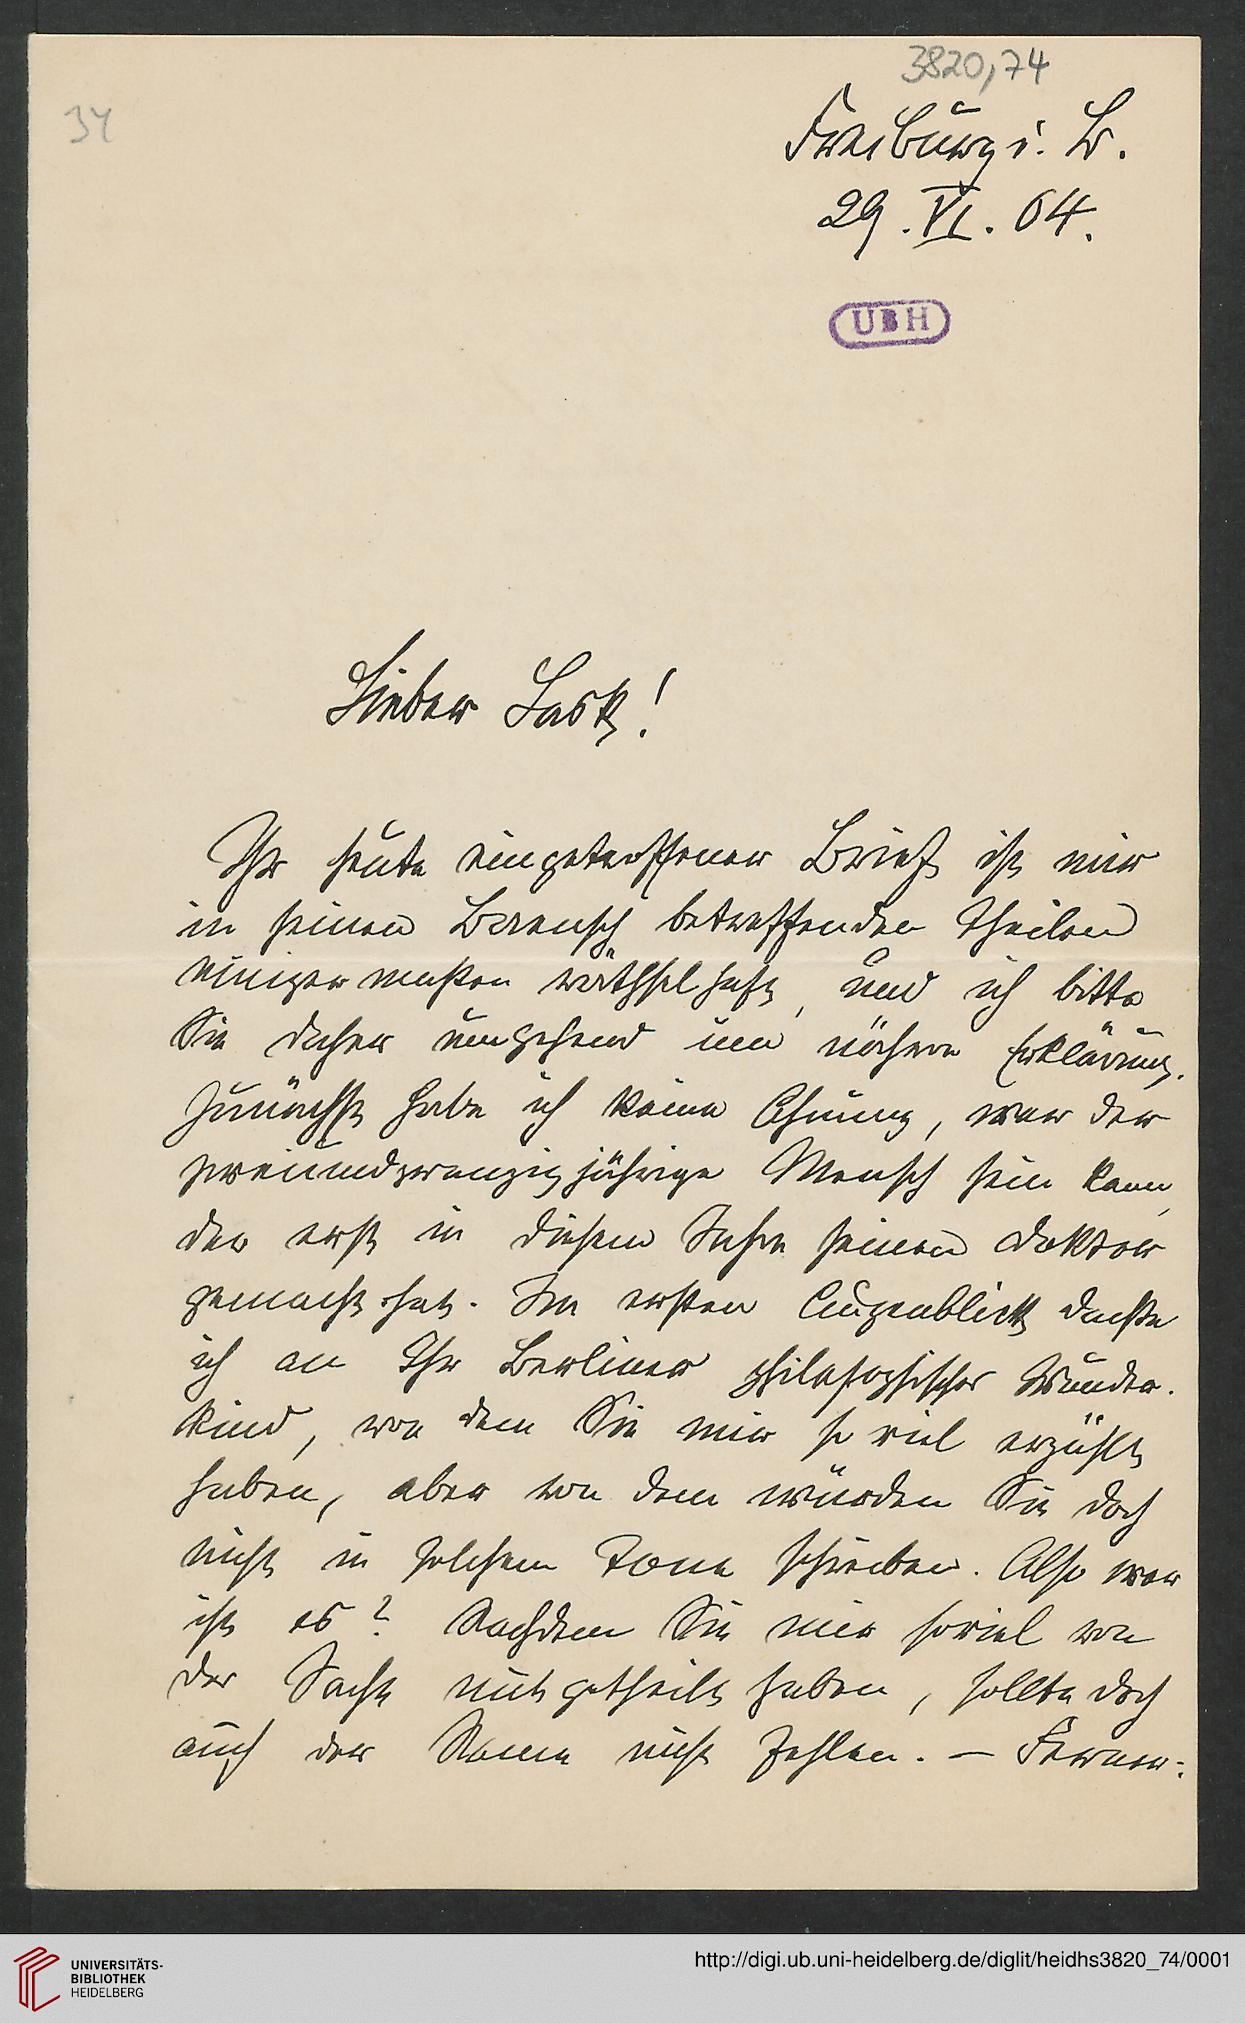 3820,74
34
Freiburg i. B.
29. VI. 04.
UBH
Lieber Lask!
Ihr heute eingetroffener Brief ist mir
in seinen Baensch betreffenden Theilen
einigermaßen räthselhaft, und ich bitte
Sie daher umgehend um nähere Erklärung.
Zunächst habe ich keine Ahnung, wer der
zweiundzwanzigjährige Mensch sein kann,
der erst in diesem Jahre seinen Doktor
gemacht hat. Im ersten Augenblick dachte
ich an Ihr Berliner philosophisches Wunder-
kind, von dem Sie mir so viel erzählt
haben, aber von dem würden Sie doch
nicht in solchem Tone schreiben. Also wer
ist es? Nachdem Sie mir soviel von
der Sache mitgetheilt haben, sollte doch
auch der Name nicht fehlen. – Ferner:
UNIVERSITÄTS-
BIBLIOTHEK
HEIDELBERG
http://digi.ub.uni-heidelberg.de/diglit/heidhs3820_74/0001